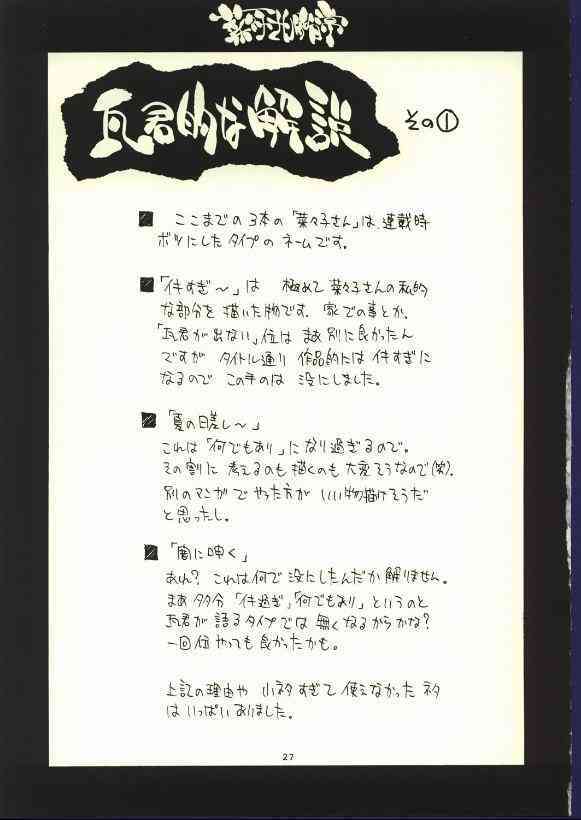 瓦君的な解説
その①
■ ここまでの3本の「菜々子さん」は、連載時
ボツにしたタイプのネームです。
■「件すぎ〜」は 極めて菜々子さんの私的
な部分を描いた物です。家での事とか。
「瓦君が出ない」位は まあ別に良かったん
ですが タイトル通り 作品的には件すぎに
なるので この手のは 没にしました。
■「夏の日差し〜」
これは「何でもあり」になり過ぎるので。
その割に 考えるのも描くのも 大変そうなので(笑)。
別のマンガで やった方が いい物描けそうだ
と思ったし。
■「闇に呻く」
あれ? これは何で没にしたんだか解りません。
まあ多分「件過ぎ」「何でもあり」というのと
瓦君が語るタイプでは 無くなるからかな?
一回位やっても良かったかも。
上記の理由や 小ネタすぎて 使えなかった ネタ
は いっぱいありました。
27